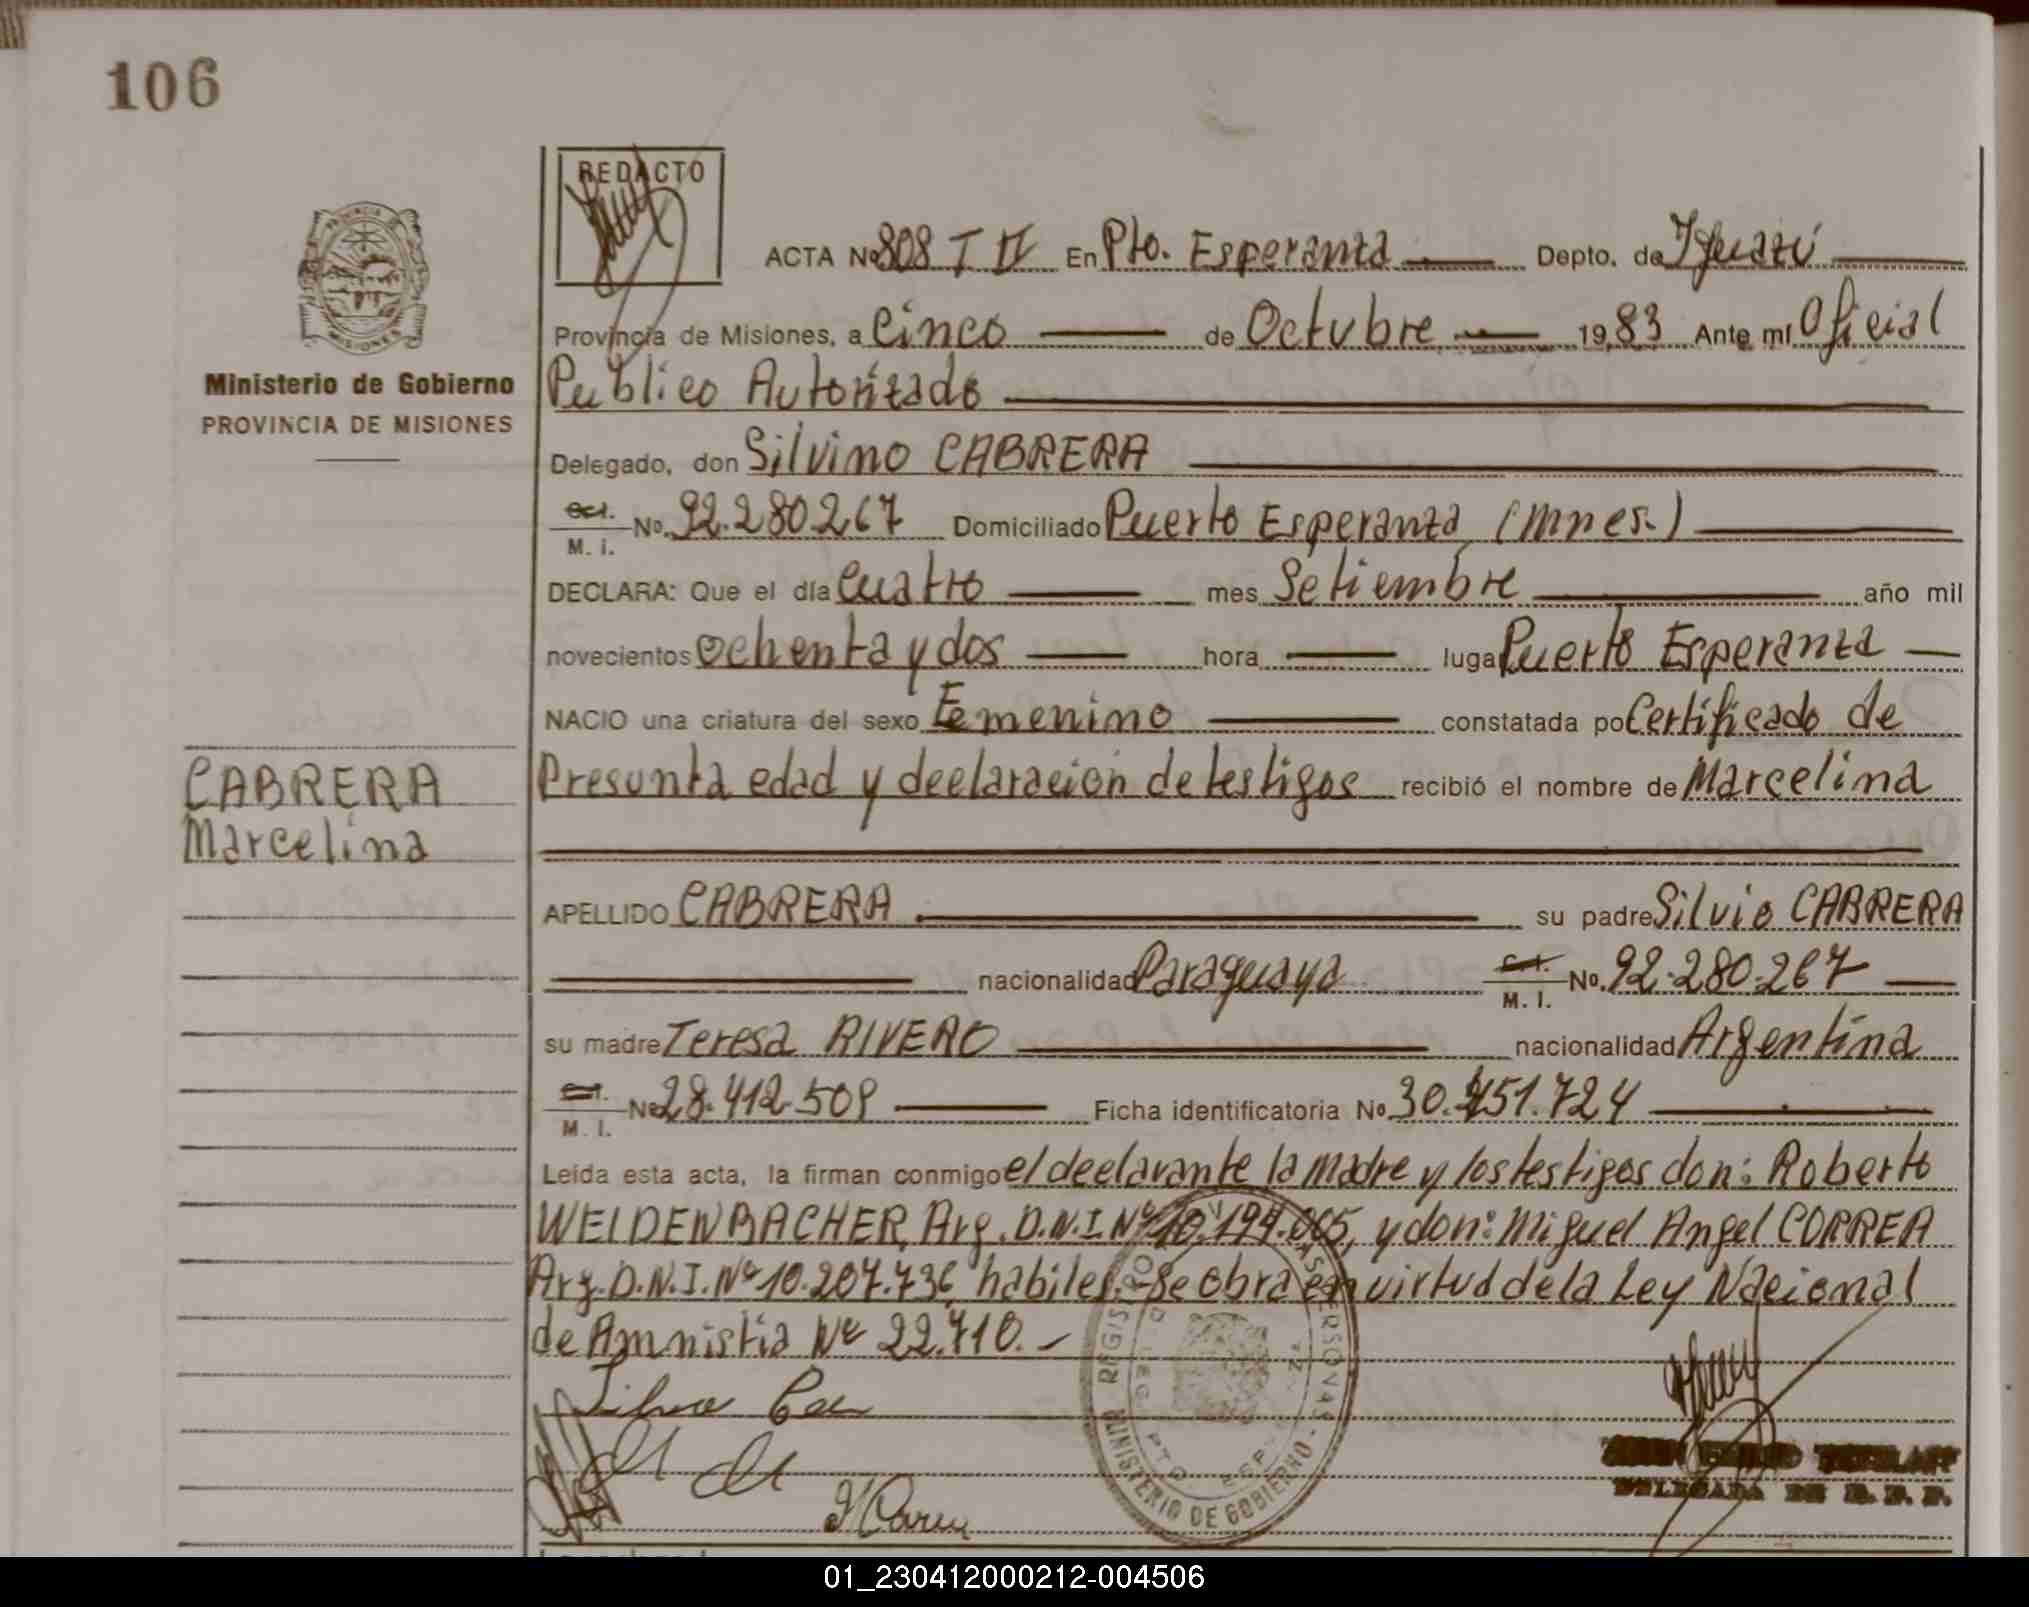 106
REDACTO
ACTA Nº 808 T II En Pto. Esperanza Depto. de Iguazú
Provincia de Misiones, a Cinco de Octubre 1983 Ante mí Oficial
Publico Autorizado
Ministerio de Gobierno
PROVINCIA DE MISIONES
Delegado, don Silvino CABRERA
C.I. M. I. No. 92.280.267 Domiciliado Puerto Esperanza (Mnes.)
DECLARA: Que el día Cuatro mes Setiembre año mil
novecientos ochenta y dos hora lugar Puerto Esperanza
NACIO una criatura del sexo Femenino constatada por Certificado de
Presunta edad y declaración de testigos recibió el nombre de Marcelina
CABRERA
Marcelina
APELLIDO CABRERA su padre Silvio CABRERA
nacionalidad Paraguaya C.I. M. I. No. 92.280.267
su madre Teresa RIVERO nacionalidad Argentina
C.I. M. I. No 28.412.509 Ficha identificatoria No. 30.451.724
Leída esta acta, la firman conmigo el declarante la madre y los testigos don: Roberto
WEIDENBACHER, Arg. D.N.I. Nº 10.194.005, y don: Miguel Angel CORREA
Arg. D.N.I. Nº 10.207.736, habiles.-Se obra en virtud de la Ley Nacional
de Amnistia Nº 22.410.-
MINISTERIO DE GOBIERNO
DELEGADA DE R. P. P.
01_230412000212-004506